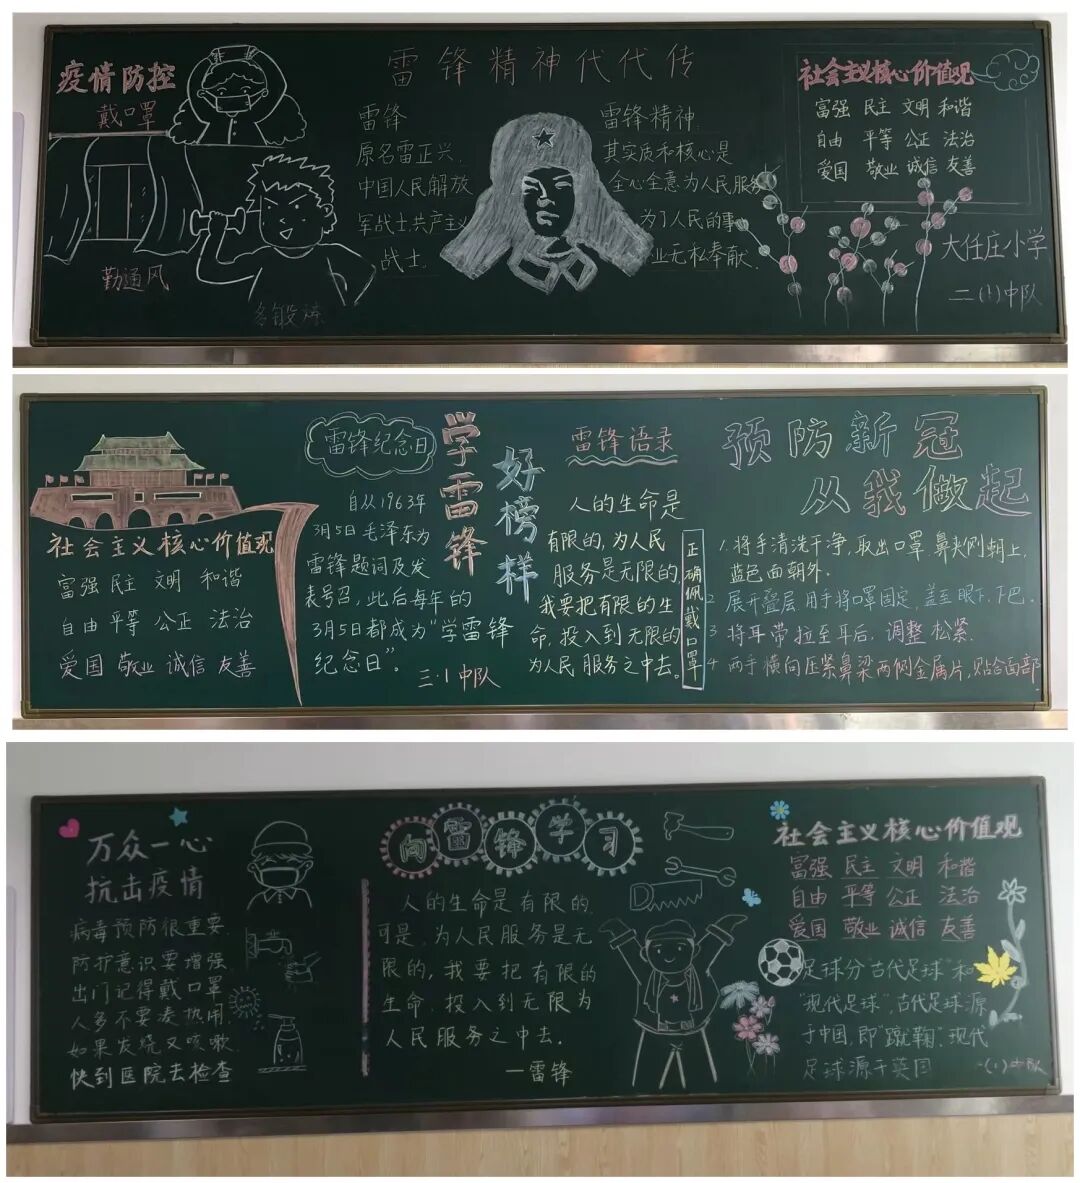 疫情防控
戴口罩
勤通风
多锻炼
雷锋精神代代传
雷锋
原名雷正兴.
中国人民解放
军战士,共产主义
战士.
雷锋精神:
其实质和核心是
全心全意为人民服务
为了人民的事
业无私奉献.
社会主义核心价值观
富强 民主 文明 和谐
自由 平等 公正 法治
爱国 敬业 诚信 友善
大任庄小学
二(1)中队
社会主义核心价值观
富强 民主 文明 和谐
自由 平等 公正 法治
爱国 敬业 诚信 友善
雷锋纪念日
自从1963年
3月5日毛泽东为
雷锋题词及发
表号召,此后每年的
3月5日都成为“学雷锋
纪念日”。
三·1中队
学雷锋
好榜样
雷锋语录
人的生命是
有限的,为人民
服务是无限的
我要把有限的生
命,投入到无限的
为人民服务之中去。
正确佩戴口罩
预防新冠
从我做起
1.将手清洗干净,取出口罩,鼻夹侧朝上,
蓝色面朝外.
2 展开叠层,用手将口罩固定,盖至眼下、下巴.
3 将耳带拉至耳后,调整松紧.
4 两手横向压紧鼻梁两侧金属片,贴合面部
万众一心
抗击疫情
病毒预防很重要,
防护意识要增强.
出门记得戴口罩
人多不要凑热闹.
如果发烧又咳嗽,
快到医院去检查
向雷锋学习
人的生命是有限的,
可是,为人民服务是无
限的,我要把有限的
生命,投入到无限为
人民服务之中去。
—雷锋
社会主义核心价值观
富强 民主 文明 和谐
自由 平等 公正 法治
爱国 敬业 诚信 友善
足球分“古代足球”和
“现代足球”,古代足球源
于中国,即“蹴鞠”,现代
足球源于英国
一(1)中队